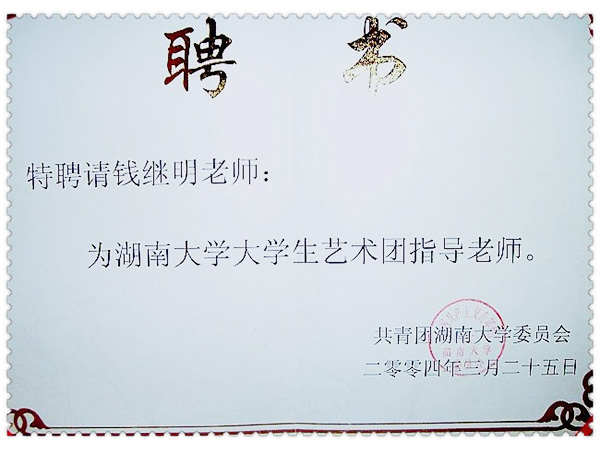 聘书
特聘请钱继明老师：
为湖南大学大学生艺术团指导老师。
共青团湖南大学委员会
湖南大学
二零零四年三月二十五日